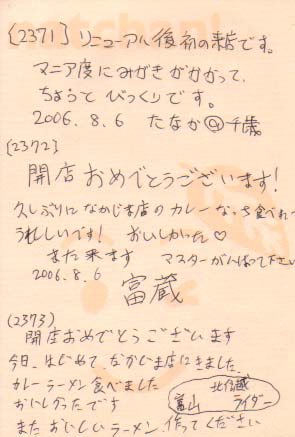 [2371] リニューアル後初の来店です。
マニア度にみがきがかかって、
ちょっと びっくりです。
2006.8.6 たなか@千歳
[2372]
開店おめでとうございます!
久しぶりになかじま店のカレー
うれしいです! おいしかった♡
また来ます マスターがんばって下さい
2006.8.6
富蔵
(2373)
開店おめでとうございます
今日、はじめて なかじま店にきました。
カレーラーメン食べました
おいしかったです
富山 ライダー
また おいしいラーメン 作ってください